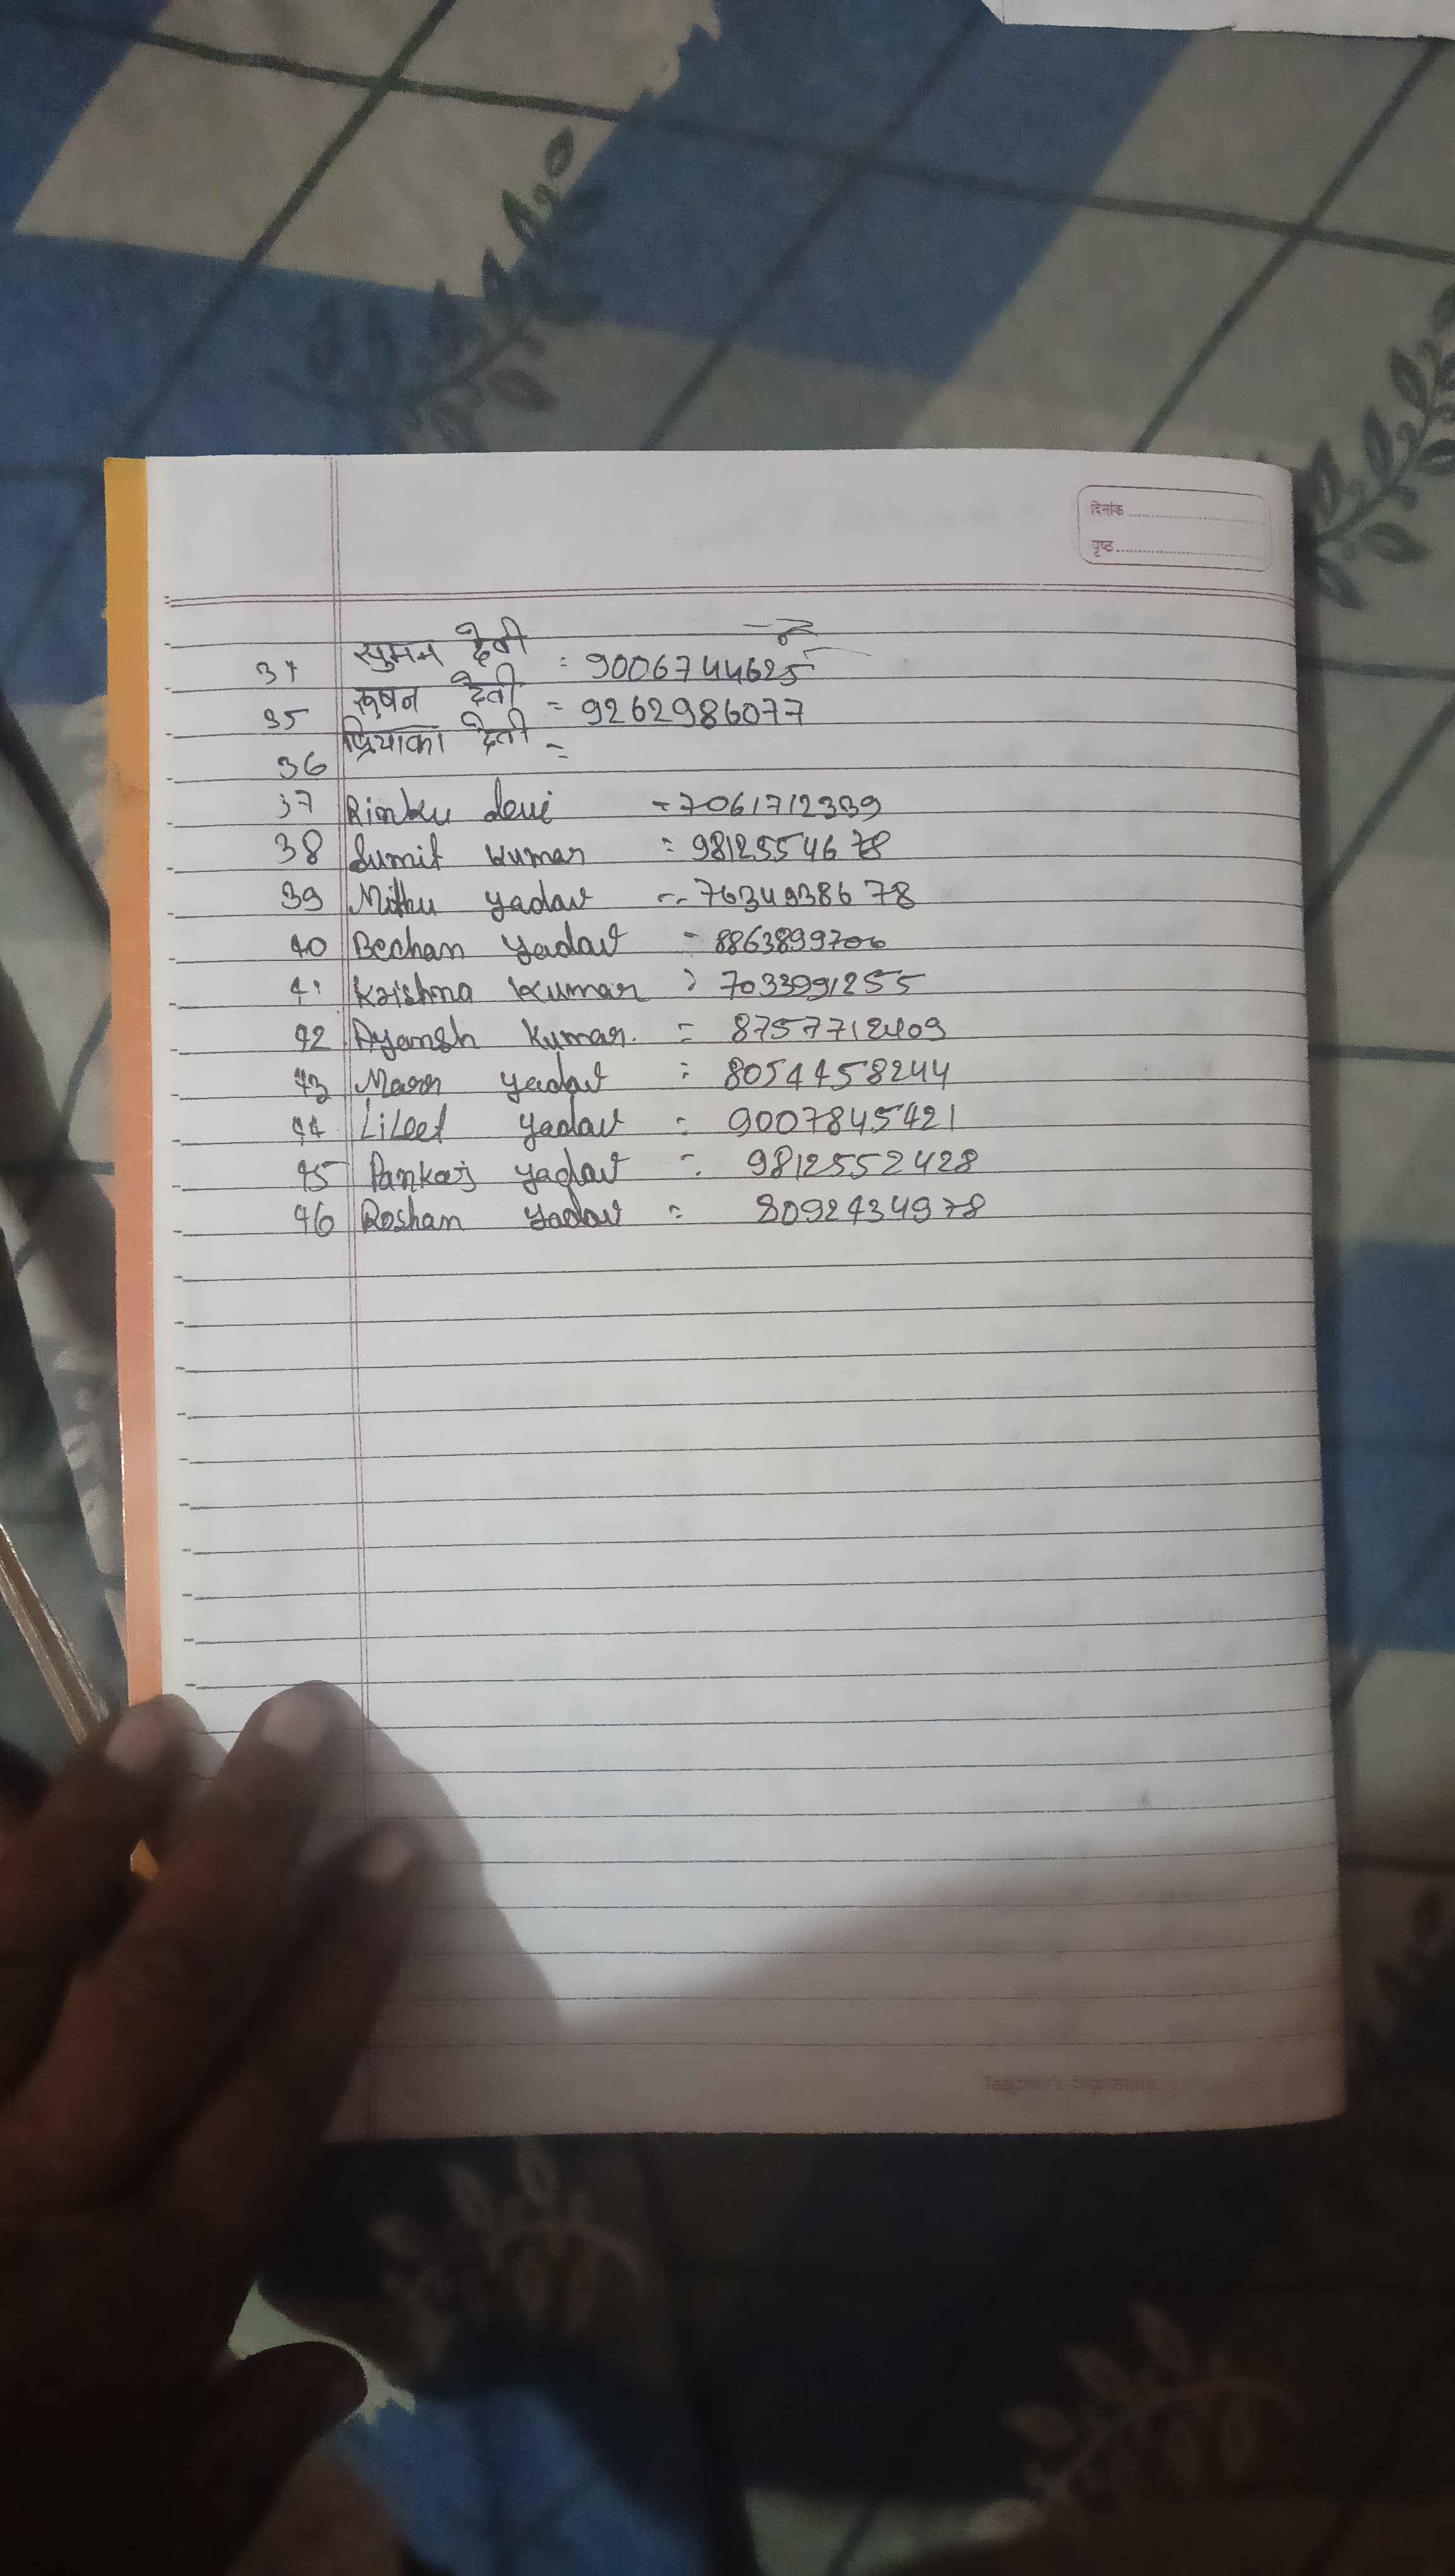 दिनांक
पृष्ठ
34 सुमन देवी = 9006744625
35 रूषन देवी = 9262986077
36 प्रियाका देवी =
37 Rinku devi - 7061712339
38 Sumit kumar = 9812554678
39 Mithu yadav - 7634938678
40 Bechan yadav - 8863899706
41 Krishna kumar = 7033991255
42 Ayansh kumar. = 8757712409
43 yadav = 8054458244
44 yadav = 9007845421
45 Pankaj yadav = 9812552428
46 Roshan yadav = 8092434978
Teacher's Signature